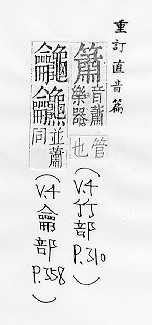 重訂直音篇
簫 音蕭管
樂器也
(V.4 竹部 P.310)
並蕭
同
(V.4 龠部 P.358)